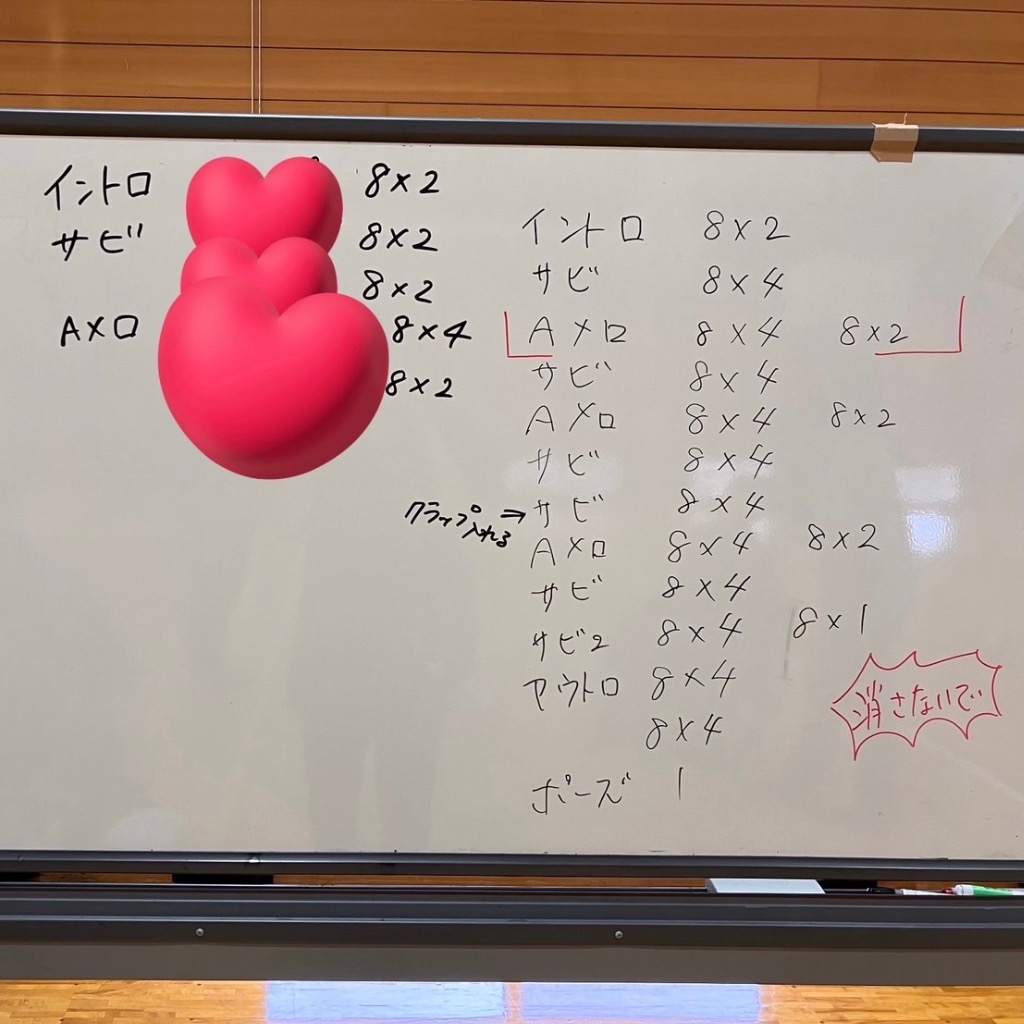 イントロ 8×2
サビ 8×2
8×2
Aメロ 8×4
8×2
イントロ 8×2
サビ 8×4
Aメロ 8×4 8×2
サビ 8×4
Aメロ 8×4 8×2
サビ 8×4
クラップ入れる→サビ 8×4
Aメロ 8×4 8×2
サビ 8×4
サビ2 8×4 8×1
アウトロ 8×4
8×4
ポーズ 1
消さないで